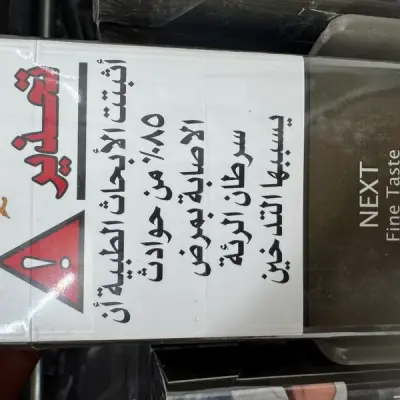 تحذير
أثبتت الأبحاث الطبية أن
٨٥٪ من حوادث
الاصابة بمرض
سرطان الرئة
يسببها التدخين
NEXT
Fine Taste